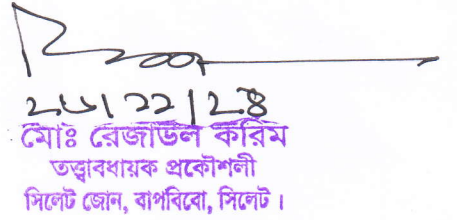 ২৬/১১/২৪
মোঃ রেজাউল করিম
তত্ত্বাবধায়ক প্রকৌশলী
সিলেট জোন, বাপবিবো, সিলেট।